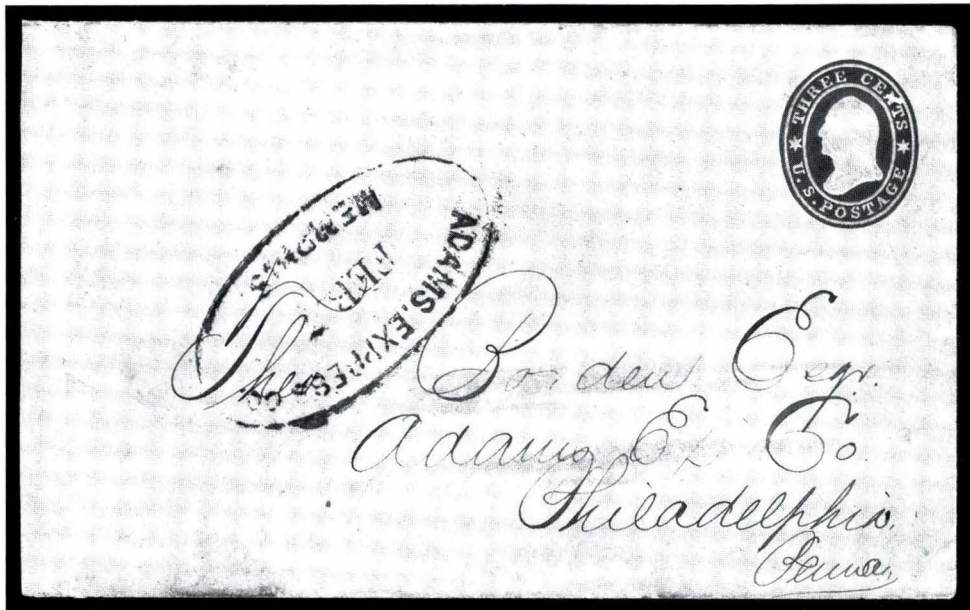 THREE CENTS
U.S. POSTAGE
ADAMS EXPRESS
MEMPHIS
Borden Esqr.
Adams Ex Co
Philadelphia
Penna.